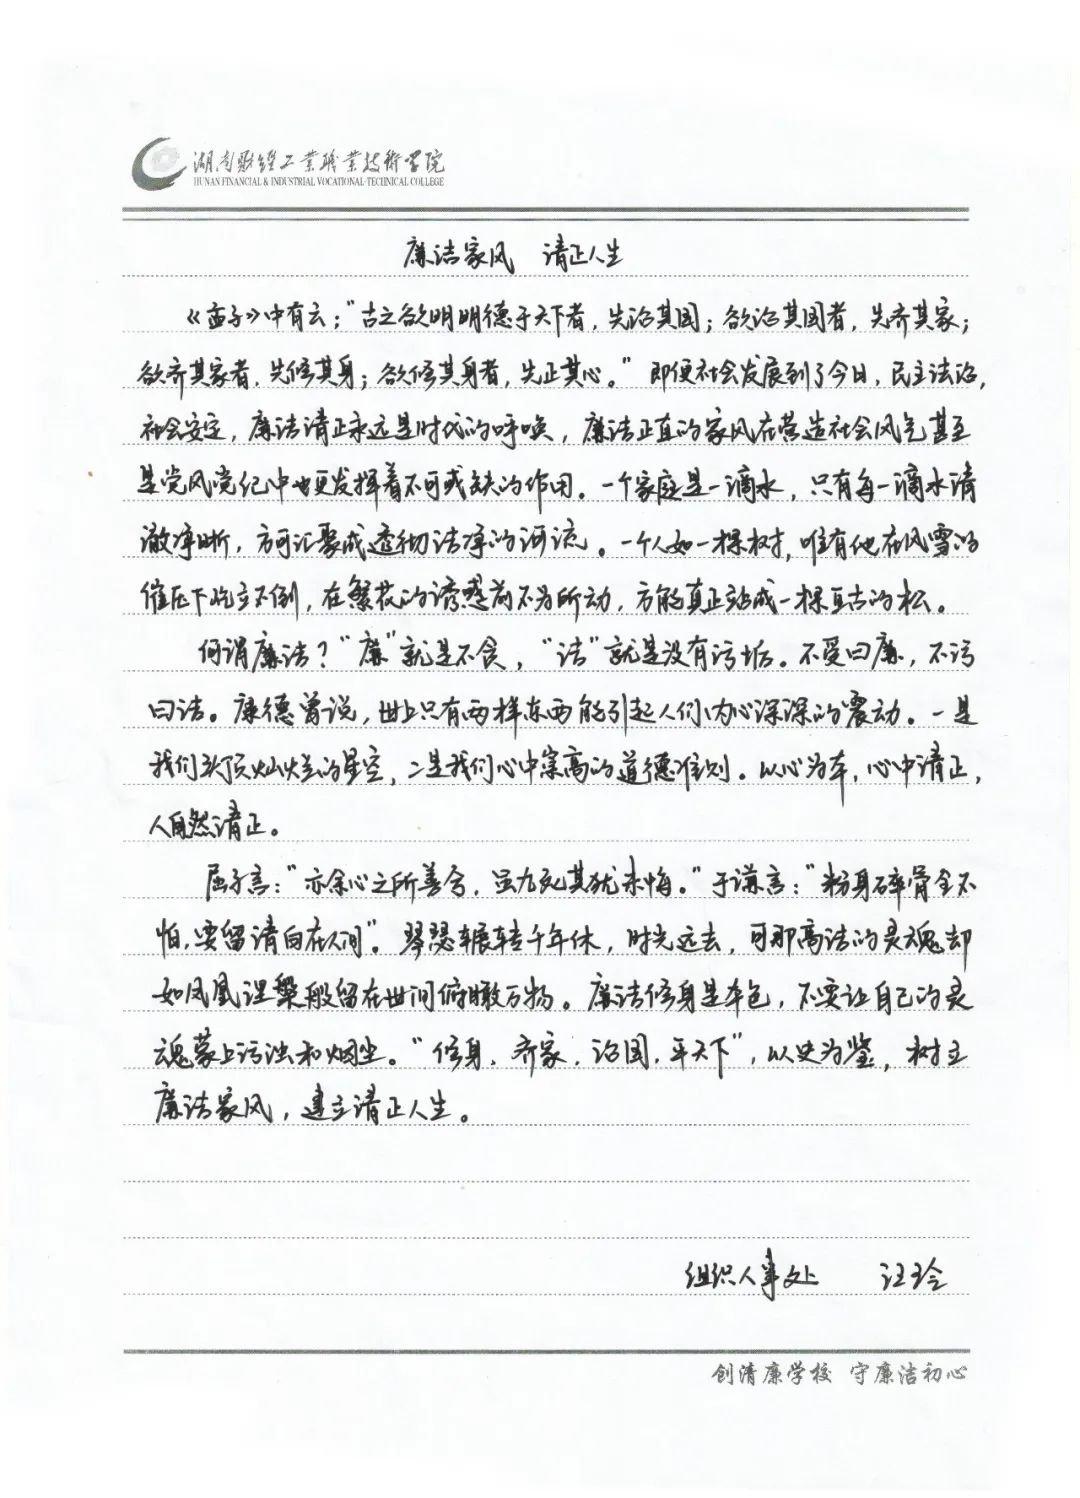 湖南财经工业职业技术学院
HUNAN FINANCIAL & INDUSTRIAL VOCATIONAL TECHNICAL COLLEGE
廉洁家风 清正人生
《孟子》中有云：“古之欲明明德于天下者，先治其国；欲治其国者，先齐其家；
欲齐其家者，先修其身；欲修其身者，先正其心。”即便社会发展到了今日，民主法治，
社会安定，廉洁清正永远是时代的呼唤，廉洁正直的家风在营造社会风气甚至
是党风党纪中也更发挥着不可或缺的作用。一个家庭是一滴水，只有每一滴水清
澈净晰，方可汇聚成透彻洁净的河流。一个人如一棵树，唯有他在风雪的
催压下屹立不倒，在繁花的诱惑前不为所动，方能真正站成一棵亘古的松。
何谓廉洁？“廉”就是不贪，“洁”就是没有污垢。不受曰廉，不污
曰洁。康德曾说，世上只有两样东西能引起人们内心深深的震动。一是
我们头顶灿烂的星空，二是我们心中崇高的道德准则。以心为本，心中清正，
人自然清正。
屈子言：“亦余心之所善兮，虽九死其犹未悔。”于谦言：“粉身碎骨全不
怕，要留清白在人间”。琴瑟辗转千年休，时光远去，可那高洁的灵魂却
如凤凰涅槃般留在世间俯瞰万物。廉洁修身是本色，不要让自己的灵
魂蒙上污浊和烟尘。“修身，齐家，治国，平天下”，以史为鉴，树立
廉洁家风，建立清正人生。
组织人事处 汪玲
创清廉学校 守廉洁初心